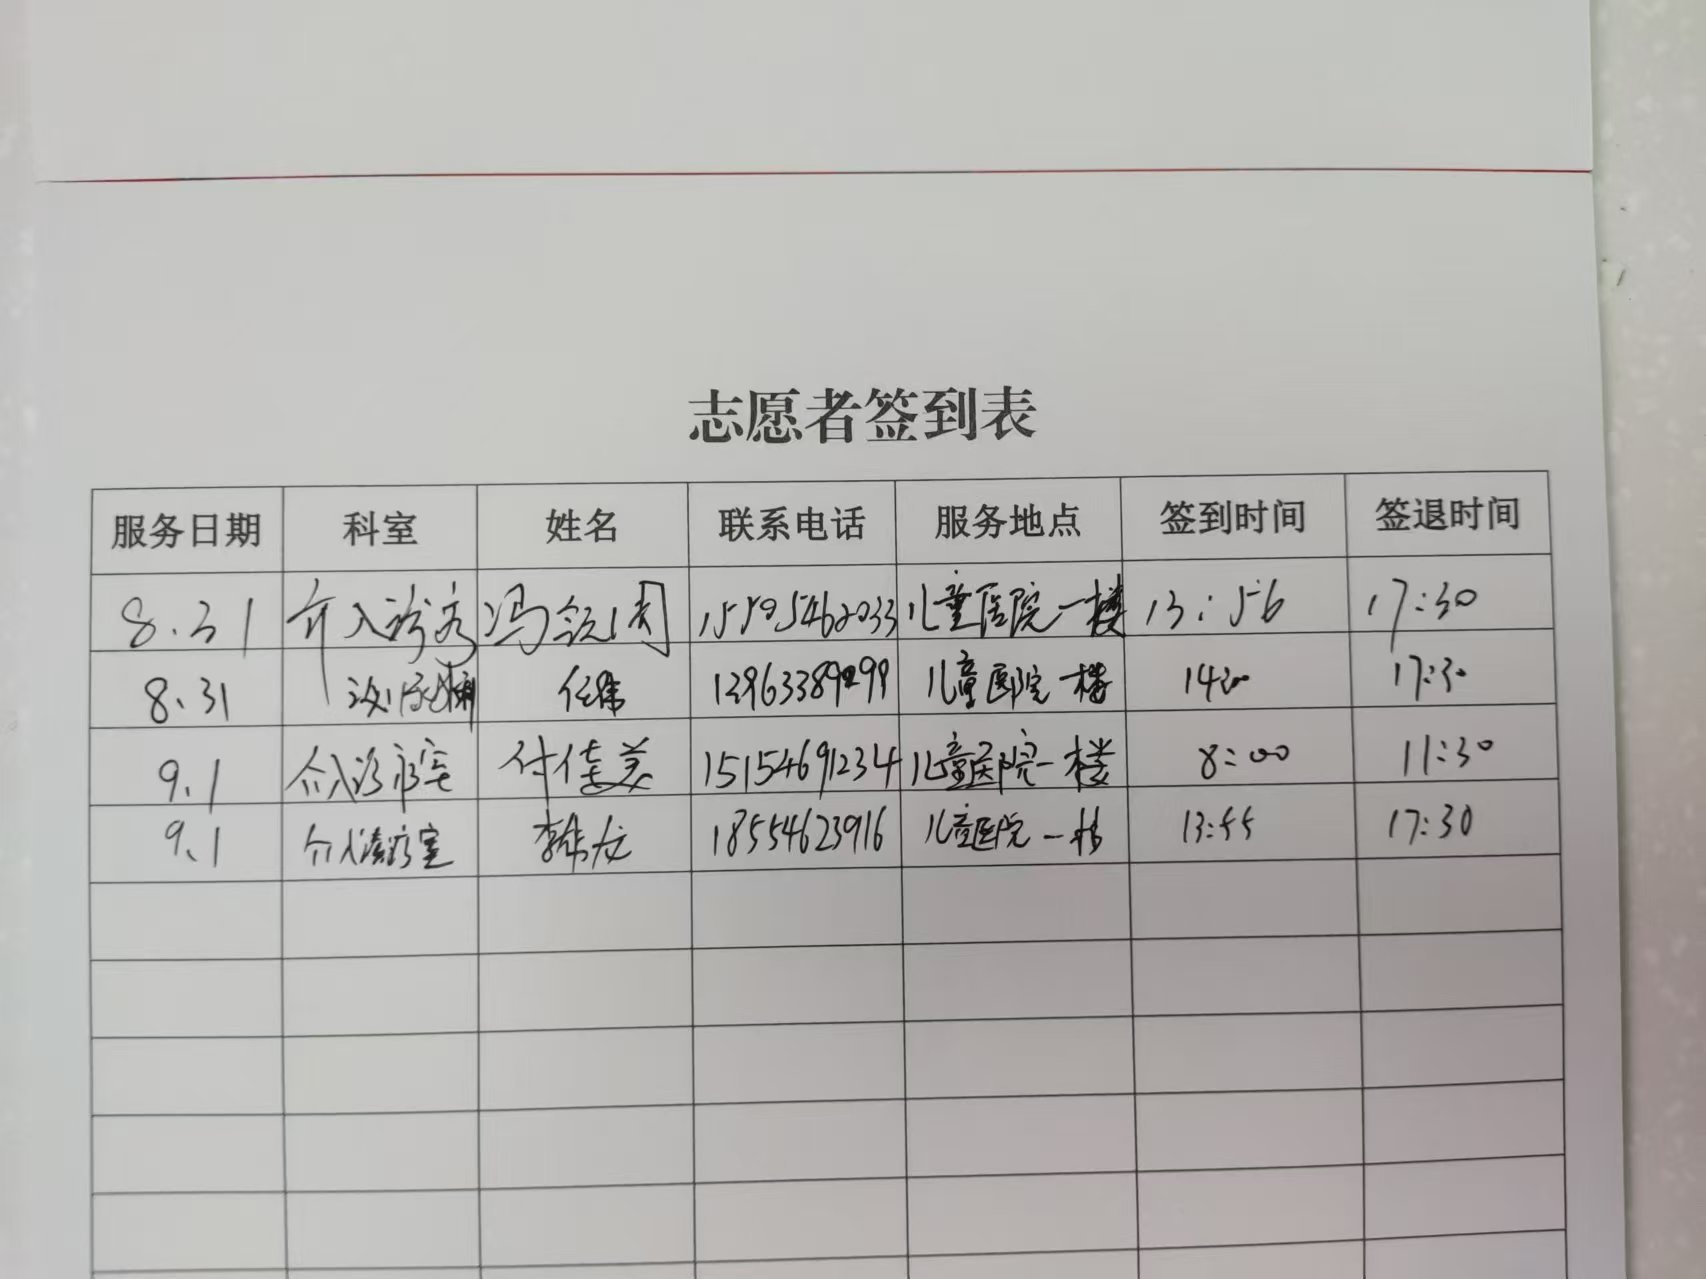 志愿者签到表
服务日期 科室 姓名 联系电话 服务地点 签到时间 签退时间
8.31 介入诊疗 冯 15505462033 儿童医院一楼 13:56 17:30
8.31 任伟 儿童医院一楼 14:00 17:30
9.1 介入诊疗室 付佳美 15154691234 儿童医院一楼 8:00 11:30
9.1 介入诊疗室 李 18554623916 儿童医院一楼 13:55 17:30